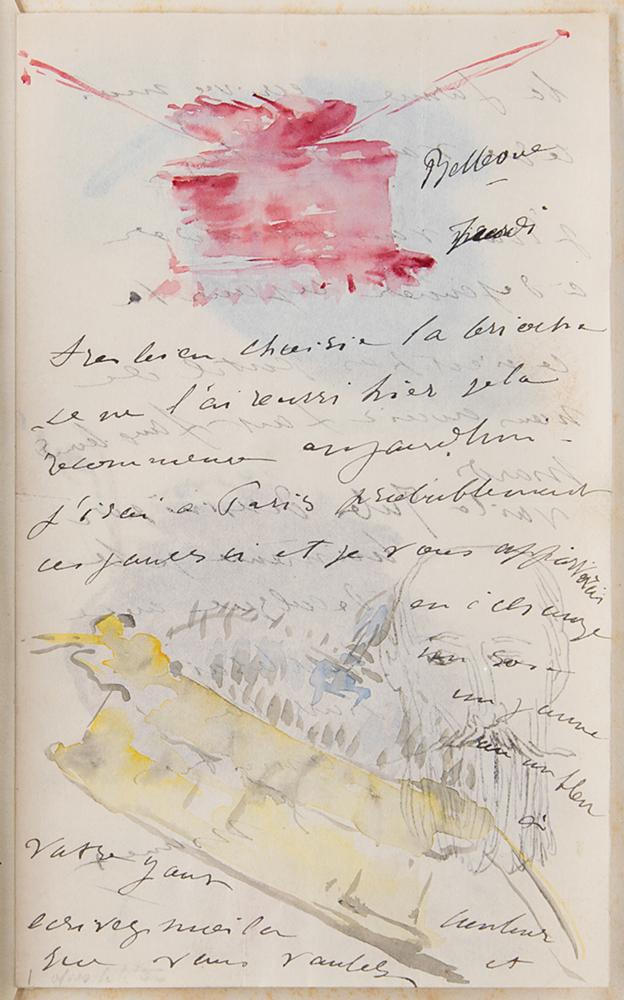 Bellevue
Jeudi
tres bien choisie la
Je ne l'ai reussi hier je la
recommence aujourdhui -
J'irai à Paris probablement
ces jours ci et je vous apporterai
en échange
un rose
un jaune
ou un bleu
à
votre gout
ecrivez moi la
couleur
que vous voulez et